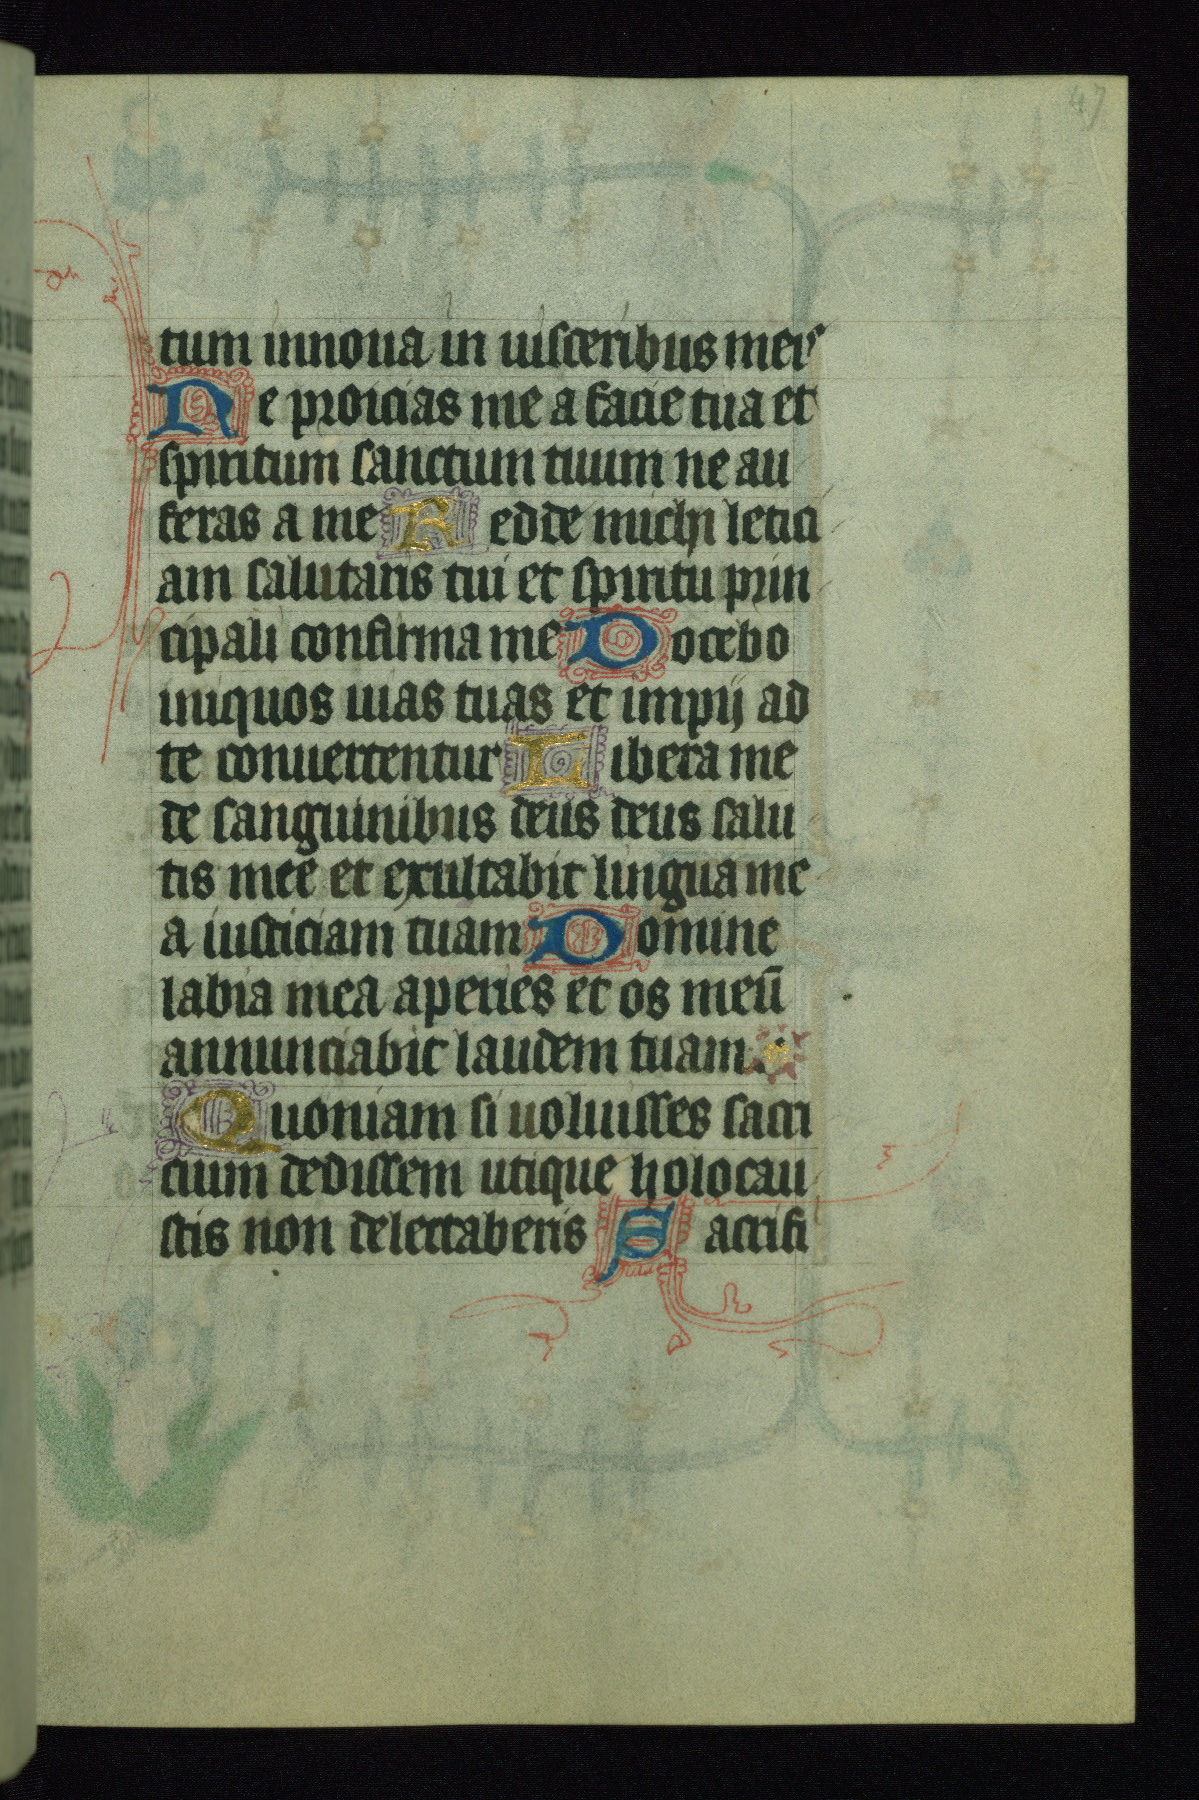 47
tum innoua in uisceribus meis
Ne proicias me a facie tua et
spiritum sanctum tuum ne au
feras a me Redde michi letici
am salutaris tui et spiritu prin
cipali confirma me Docebo
iniquos uias tuas et impij ad
te conuertentur Libera me
de sanguinibus deus deus salu
tis mee et exultabit lingua me
a iusticiam tuam Domine
labia mea aperies et os meū
annunciabit laudem tuam.
Quoniam si uoluisses sacri
cium dedissem utique holocau
stis non delectaberis Sacrifi